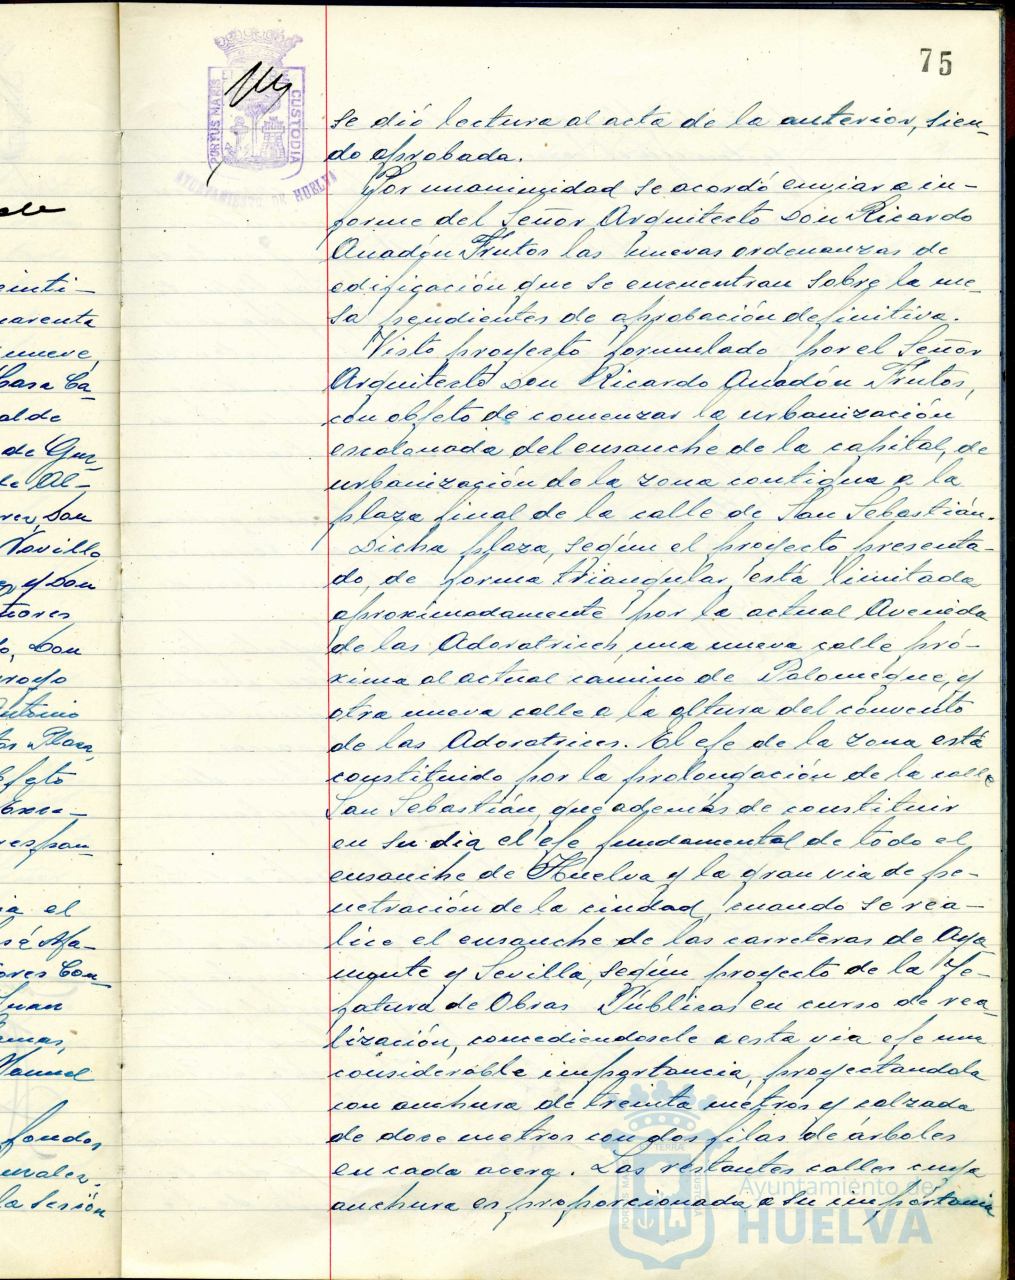 75
PORTUS MARIS
CUSTODIA
AYUNTAMIENTO DE HUELVA
se dió lectura al acta de la anterior, sien-
do aprobada.
Por unanimidad se acordó enviar a in-
forme del Señor Arquitecto Don Ricardo
Anadón Frutos las nuevas ordenanzas de
edificación que se encuentran sobre la me-
sa pendientes de aprobación definitiva.
Visto proyecto formulado por el Señor
Arquitecto Don Ricardo Anadón Frutos,
con objeto de comenzar la urbanización
escalonada del ensanche de la capital, de
urbanización de la zona contigua a la
plaza final de la calle de San Sebastián.
Dicha plaza, según el proyecto presenta-
do, de forma triangular, está limitada
aproximadamente por la actual Avenida
de las Adoratrices, una nueva calle pró-
xima al actual camino de Palomeque, y
otra nueva calle a la altura del convento
de las Adoratrices. El eje de la zona está
constituido por la prolongación de la calle
San Sebastián, que además de constituir
en su dia el eje fundamental de todo el
ensanche de Huelva y la gran via de pe-
netración de la ciudad, cuando se rea-
lice el ensanche de las carreteras de Aya
monte y Sevilla, según proyecto de la Je-
fatura de Obras Públicas en curso de rea-
lización, concediendosele a esta via eje una
considerable importancia, proyectandola
con anchura de treinta metros y calzada
de doce metros con dos filas de árboles
en cada acera. Las restantes calles cuya
anchura es proporcionada a su importancia
einti-
uarenta
nueve,
Casa Ca-
alde
de Guz-
de Al-
rez, Don
Novillo
y Don
tiores
o, Don
royo
Antonio
tos Plaza,
efeto
Exce-
respon-
ia el
José Ma-
ores Con-
Juan
Manuel
fondos
nzales,
la sesión
Ayuntamiento de
HUELVA